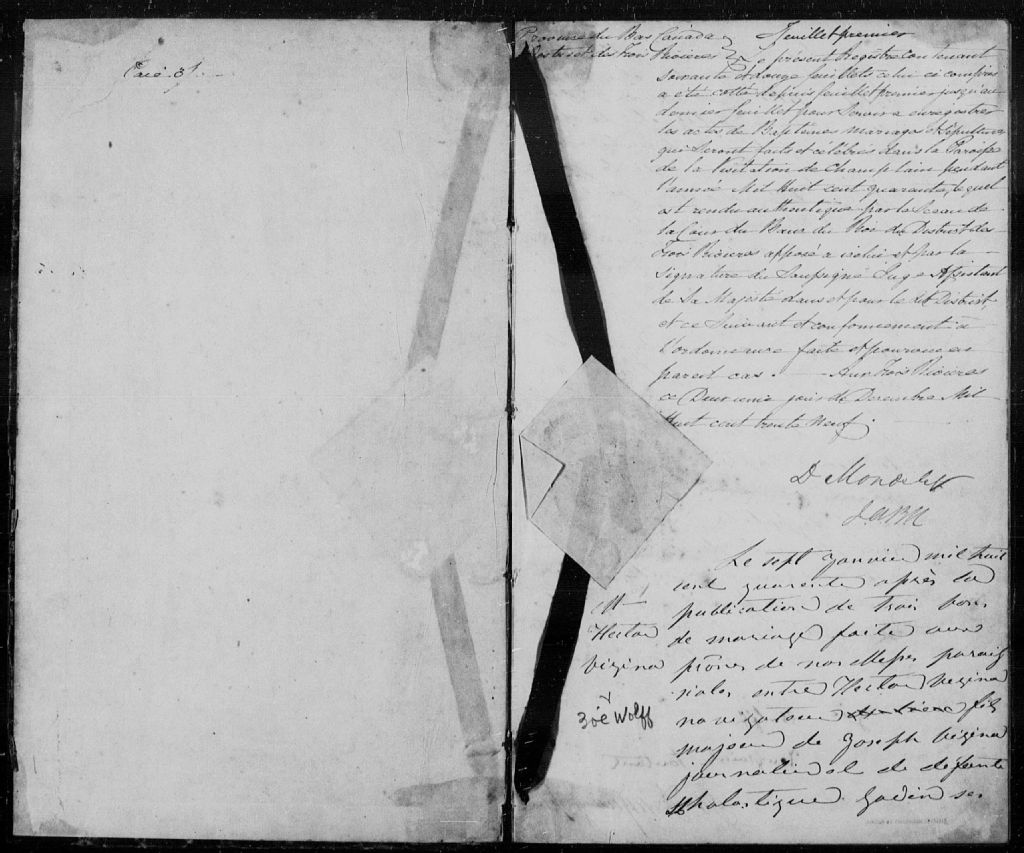 Province du Bas Canada
District des Trois Rivières
Feuillet premier
Le présent Registre contenant
soixante et douze feuillets celui ci compris
a été cotté depuis feuillet premier jusqu'au
dernier feuillet pour servir a enregistrer
les actes de Baptêmes mariages et Sépultures
qui seront faits et célébrés dans la Paroisse
de la Visitation de Champlain pendant
l'année Mil Huit cent quarante, lequel
est rendu authentique par le Sceau de
la Cour du Banc du Roi du District des
Trois Rivières apposé a icelui et par la
Signature du Soussigné Juge Assistant
de Sa Majesté dans et pour le dit District,
et ce suivant et conformement à
l'ordonnance faite et pourvue en
pareil cas. Aux Trois Rivières
ce Deuxieme jour de Decembre Mil
Huit cent trente Neuf.
D Mondelet
Le sept Janvier mil huit
cent quarante après la
publication de trois bans
de mariage faite aux
prônes de nos Messes parois
siales entre Hector Vezina
navigateur fils
majeur de Joseph Vezina
journalier et de défunte
Skolastique Godin ses
Hector
Vezina
Zoë Wolff